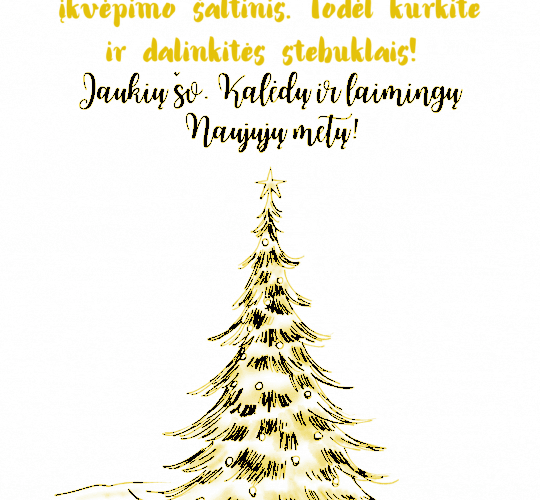 įkvėpimo šaltinis. Todėl kurkite
ir dalinkitės stebuklais!
Jaukių šv. Kalėdų ir laimingų
Naujųjų metų!